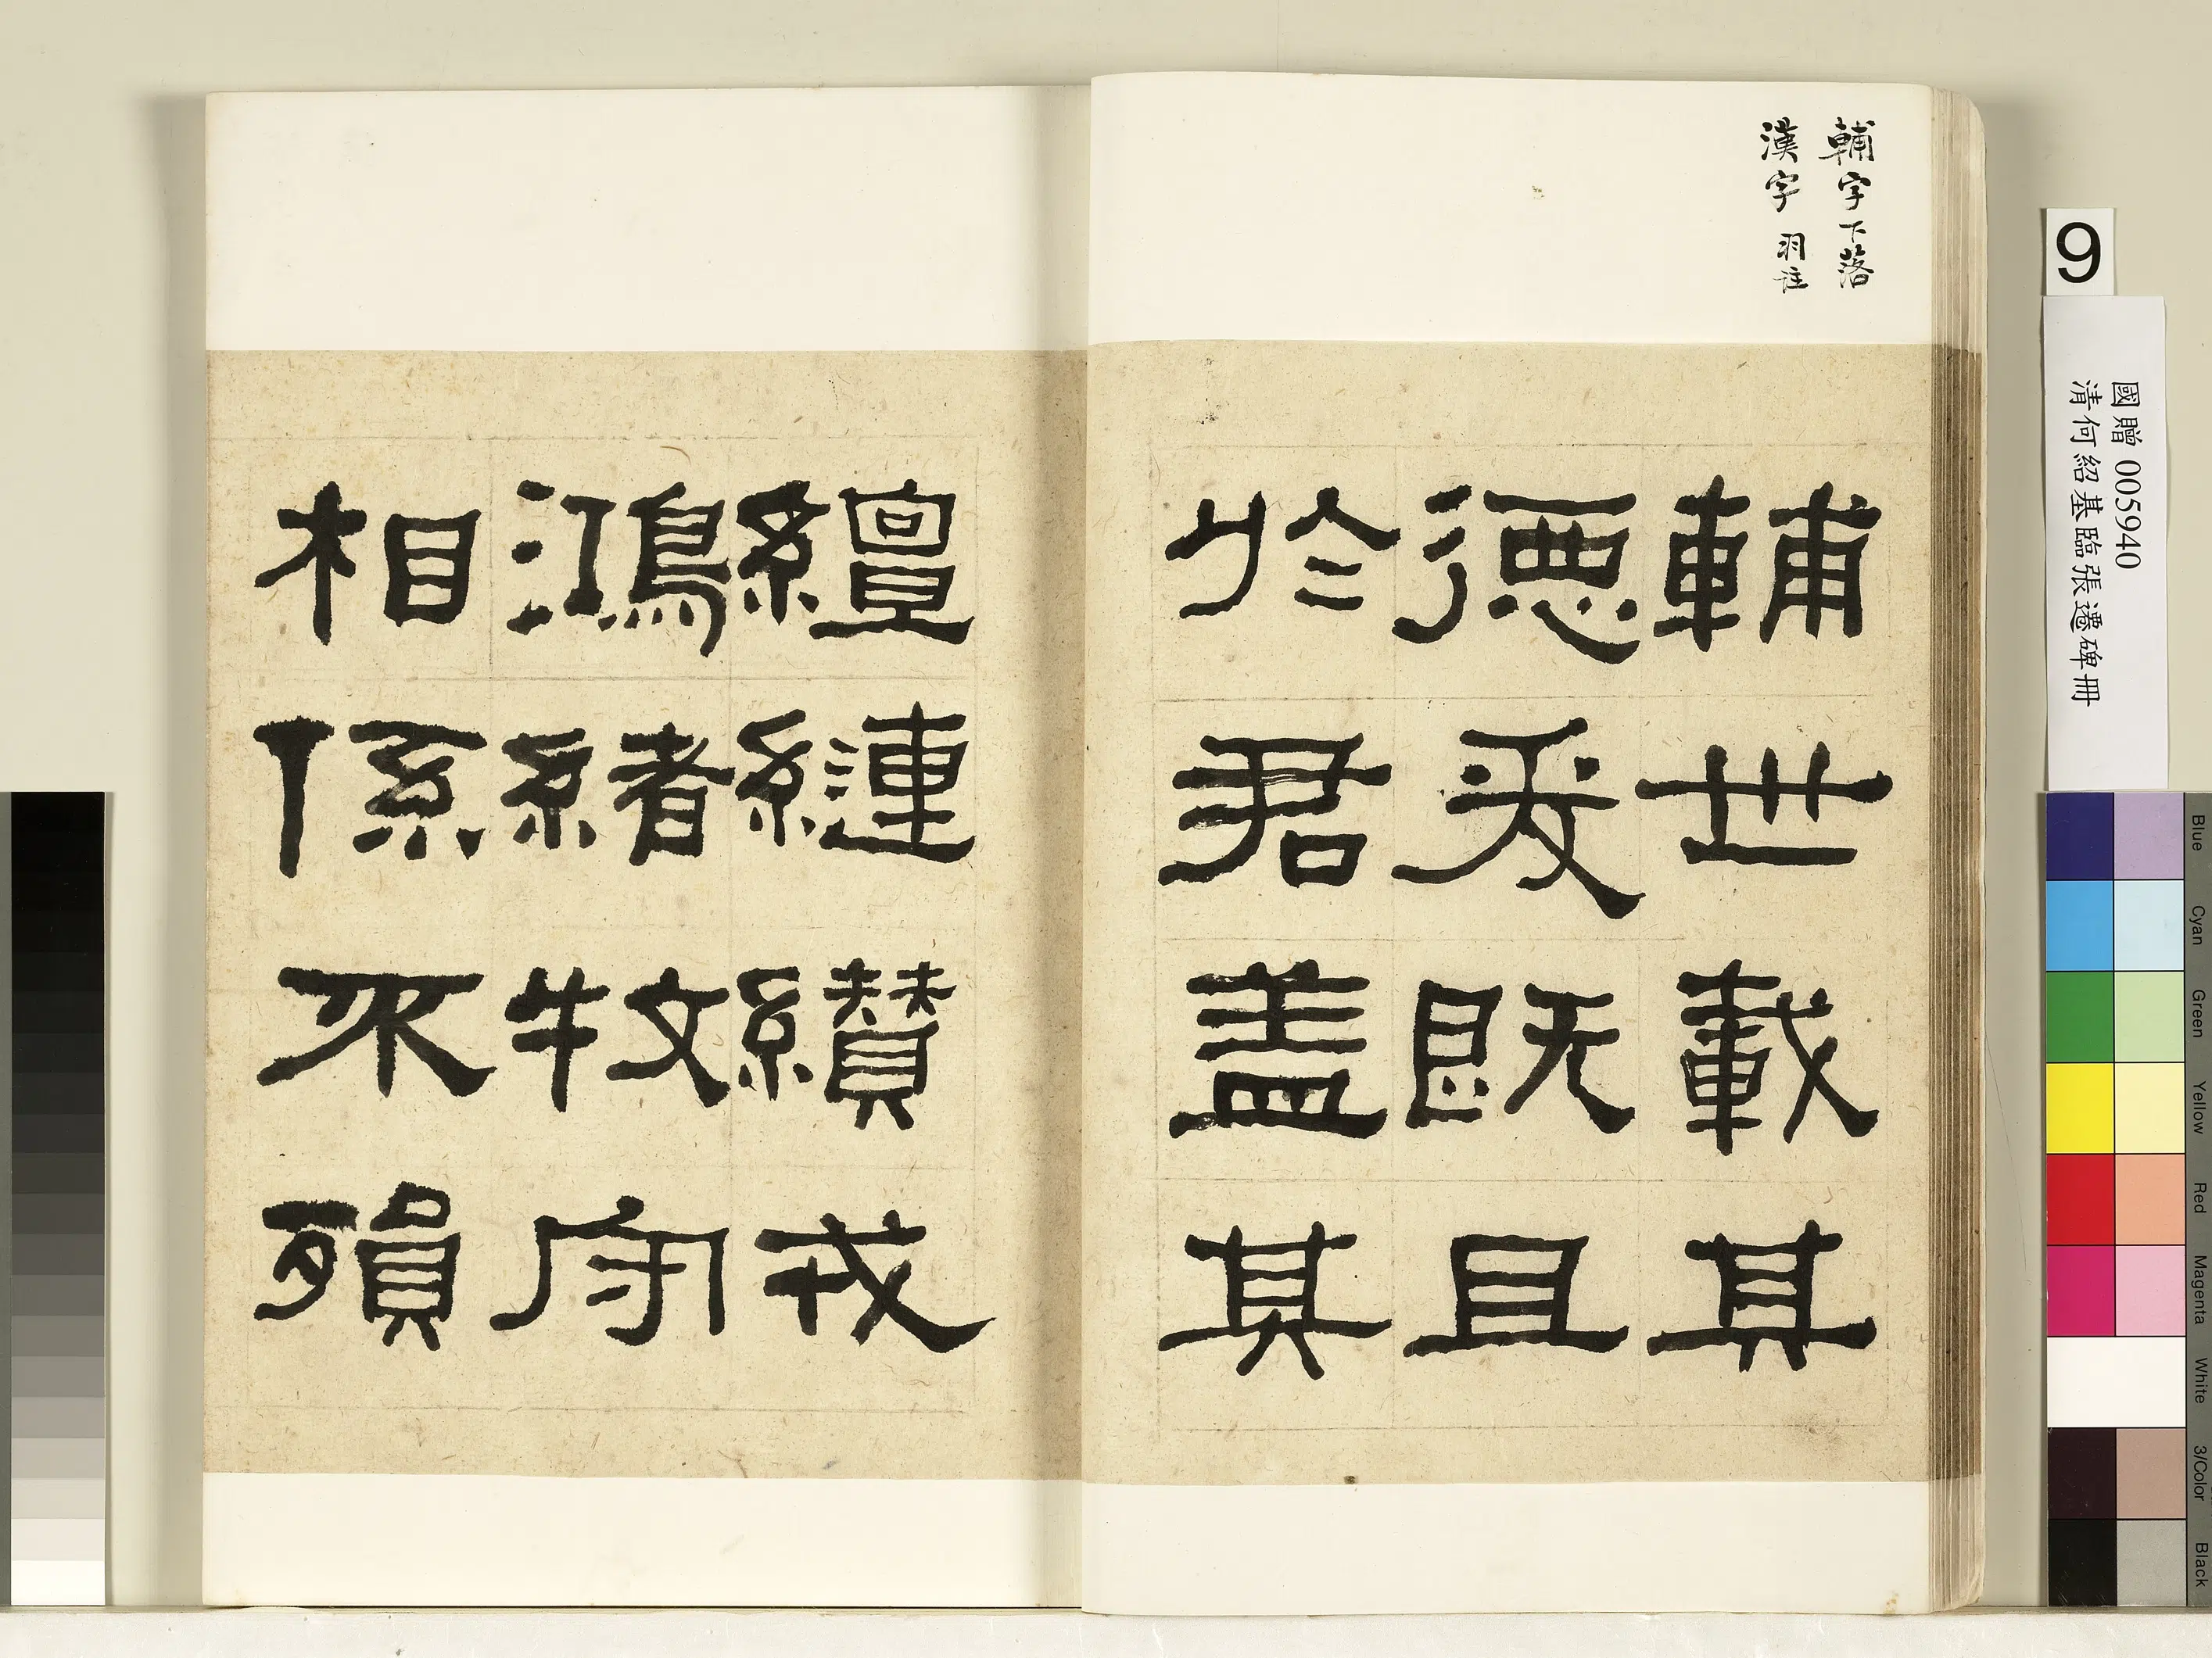 輔字下落
漢字 羽註
輔世載其
德爰既且
於君盖其
繵縺纘戎
鴻緒牧守
相係不殞
9
國贈 005940
清何紹基臨張遷碑冊
Blue
Cyan
Green
Yellow
Red
Magenta
White
3/Color
Black